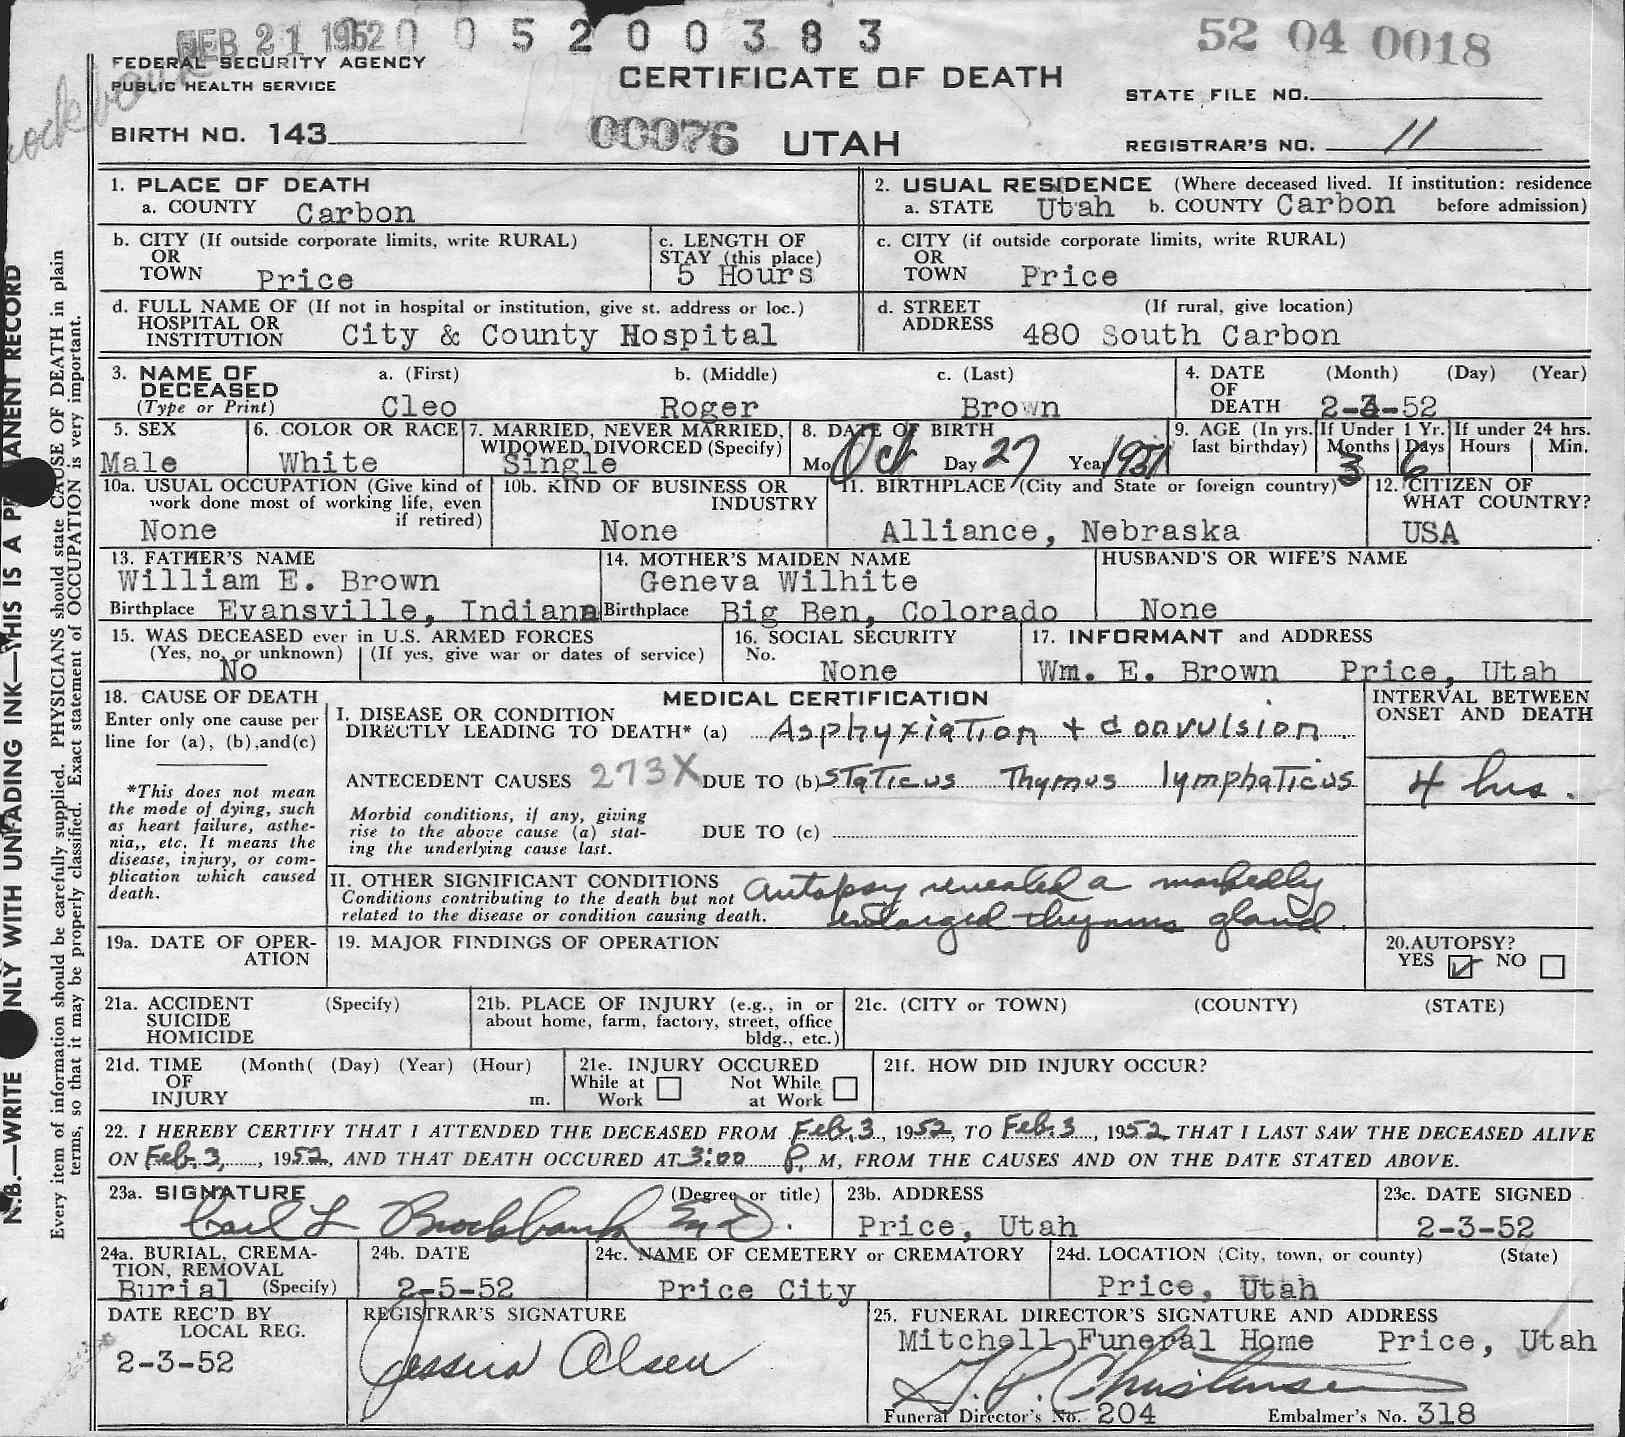 FEB 21 1952 0 0 5 2 0 0 3 8 3
52 04 0018
FEDERAL SECURITY AGENCY
PUBLIC HEALTH SERVICE
CERTIFICATE OF DEATH
STATE FILE NO.
BIRTH NO. 143
00076 UTAH
REGISTRAR'S NO. 11
1. PLACE OF DEATH
a. COUNTY Carbon
2. USUAL RESIDENCE (Where deceased lived. If institution: residence
a. STATE Utah b. COUNTY Carbon before admission)
b. CITY (If outside corporate limits, write RURAL)
OR
TOWN Price
c. LENGTH OF
STAY (this place)
5 Hours
c. CITY (if outside corporate limits, write RURAL)
OR
TOWN Price
d. FULL NAME OF (If not in hospital or institution, give st. address or loc.)
HOSPITAL OR
INSTITUTION City & County Hospital
d. STREET (If rural, give location)
ADDRESS 480 South Carbon
3. NAME OF a. (First) b. (Middle) c. (Last)
DECEASED
(Type or Print) Cleo Roger Brown
4. DATE (Month) (Day) (Year)
OF
DEATH 2-3-52
5. SEX
Male
6. COLOR OR RACE
White
7. MARRIED, NEVER MARRIED,
WIDOWED, DIVORCED (Specify)
Single
8. DATE OF BIRTH
Mo Oct Day 27 Year 1951
9. AGE (In yrs. If Under 1 Yr. If under 24 hrs.
last birthday) Months Days Hours Min.
3 6
10a. USUAL OCCUPATION (Give kind of
work done most of working life, even
if retired)
None
10b. KIND OF BUSINESS OR
INDUSTRY
None
11. BIRTHPLACE (City and State or foreign country)
Alliance, Nebraska
12. CITIZEN OF
WHAT COUNTRY?
USA
13. FATHER'S NAME
William E. Brown
Birthplace Evansville, Indiana
14. MOTHER'S MAIDEN NAME
Geneva Wilhite
Birthplace Big Ben, Colorado
HUSBAND'S OR WIFE'S NAME
None
15. WAS DECEASED ever in U.S. ARMED FORCES
(Yes, no, or unknown) (If yes, give war or dates of service)
No
16. SOCIAL SECURITY
No.
None
17. INFORMANT and ADDRESS
Wm. E. Brown Price, Utah
18. CAUSE OF DEATH
Enter only one cause per
line for (a), (b), and (c)
*This does not mean
the mode of dying, such
as heart failure, asthe-
nia,, etc. It means the
disease, injury, or com-
plication which caused
death.
MEDICAL CERTIFICATION
INTERVAL BETWEEN
ONSET AND DEATH
I. DISEASE OR CONDITION
DIRECTLY LEADING TO DEATH* (a) Asphyxiation + convulsion
ANTECEDENT CAUSES 273X DUE TO (b) Staticus Thymus lymphaticus
4 hrs.
Morbid conditions, if any, giving
rise to the above cause (a) stat-
ing the underlying cause last.
DUE TO (c)
II. OTHER SIGNIFICANT CONDITIONS
Conditions contributing to the death but not
related to the disease or condition causing death.
Autopsy revealed a markedly
enlarged thymus gland.
19a. DATE OF OPER-
ATION
19. MAJOR FINDINGS OF OPERATION
20. AUTOPSY?
YES ☑ NO ☐
21a. ACCIDENT (Specify)
SUICIDE
HOMICIDE
21b. PLACE OF INJURY (e.g., in or
about home, farm, factory, street, office
bldg., etc.)
21c. (CITY or TOWN) (COUNTY) (STATE)
21d. TIME (Month( (Day) (Year) (Hour)
OF
INJURY m.
21e. INJURY OCCURED
While at Work ☐ Not While at Work ☐
21f. HOW DID INJURY OCCUR?
22. I HEREBY CERTIFY THAT I ATTENDED THE DECEASED FROM Feb. 3, 1952, TO Feb. 3, 1952 THAT I LAST SAW THE DECEASED ALIVE
ON Feb. 3, 1952, AND THAT DEATH OCCURED AT 3:00 P. M, FROM THE CAUSES AND ON THE DATE STATED ABOVE.
23a. SIGNATURE (Degree or title)
Carl L Brockbank M.D.
23b. ADDRESS
Price, Utah
23c. DATE SIGNED
2-3-52
24a. BURIAL, CREMA-
TION, REMOVAL
Burial (Specify)
24b. DATE
2-5-52
24c. NAME OF CEMETERY or CREMATORY
Price City
24d. LOCATION (City, town, or county) (State)
Price, Utah
DATE REC'D BY
LOCAL REG.
2-3-52
REGISTRAR'S SIGNATURE
Jessica Olsen
25. FUNERAL DIRECTOR'S SIGNATURE AND ADDRESS
Mitchell Funeral Home Price, Utah
Christensen
Funeral Director's No. 204 Embalmer's No. 318
N.B.—WRITE ONLY WITH UNFADING INK—THIS IS A PERMANENT RECORD
Every item of information should be carefully supplied. PHYSICIANS should state CAUSE OF DEATH in plain
terms, so that it may be properly classified. Exact statement of OCCUPATION is very important.